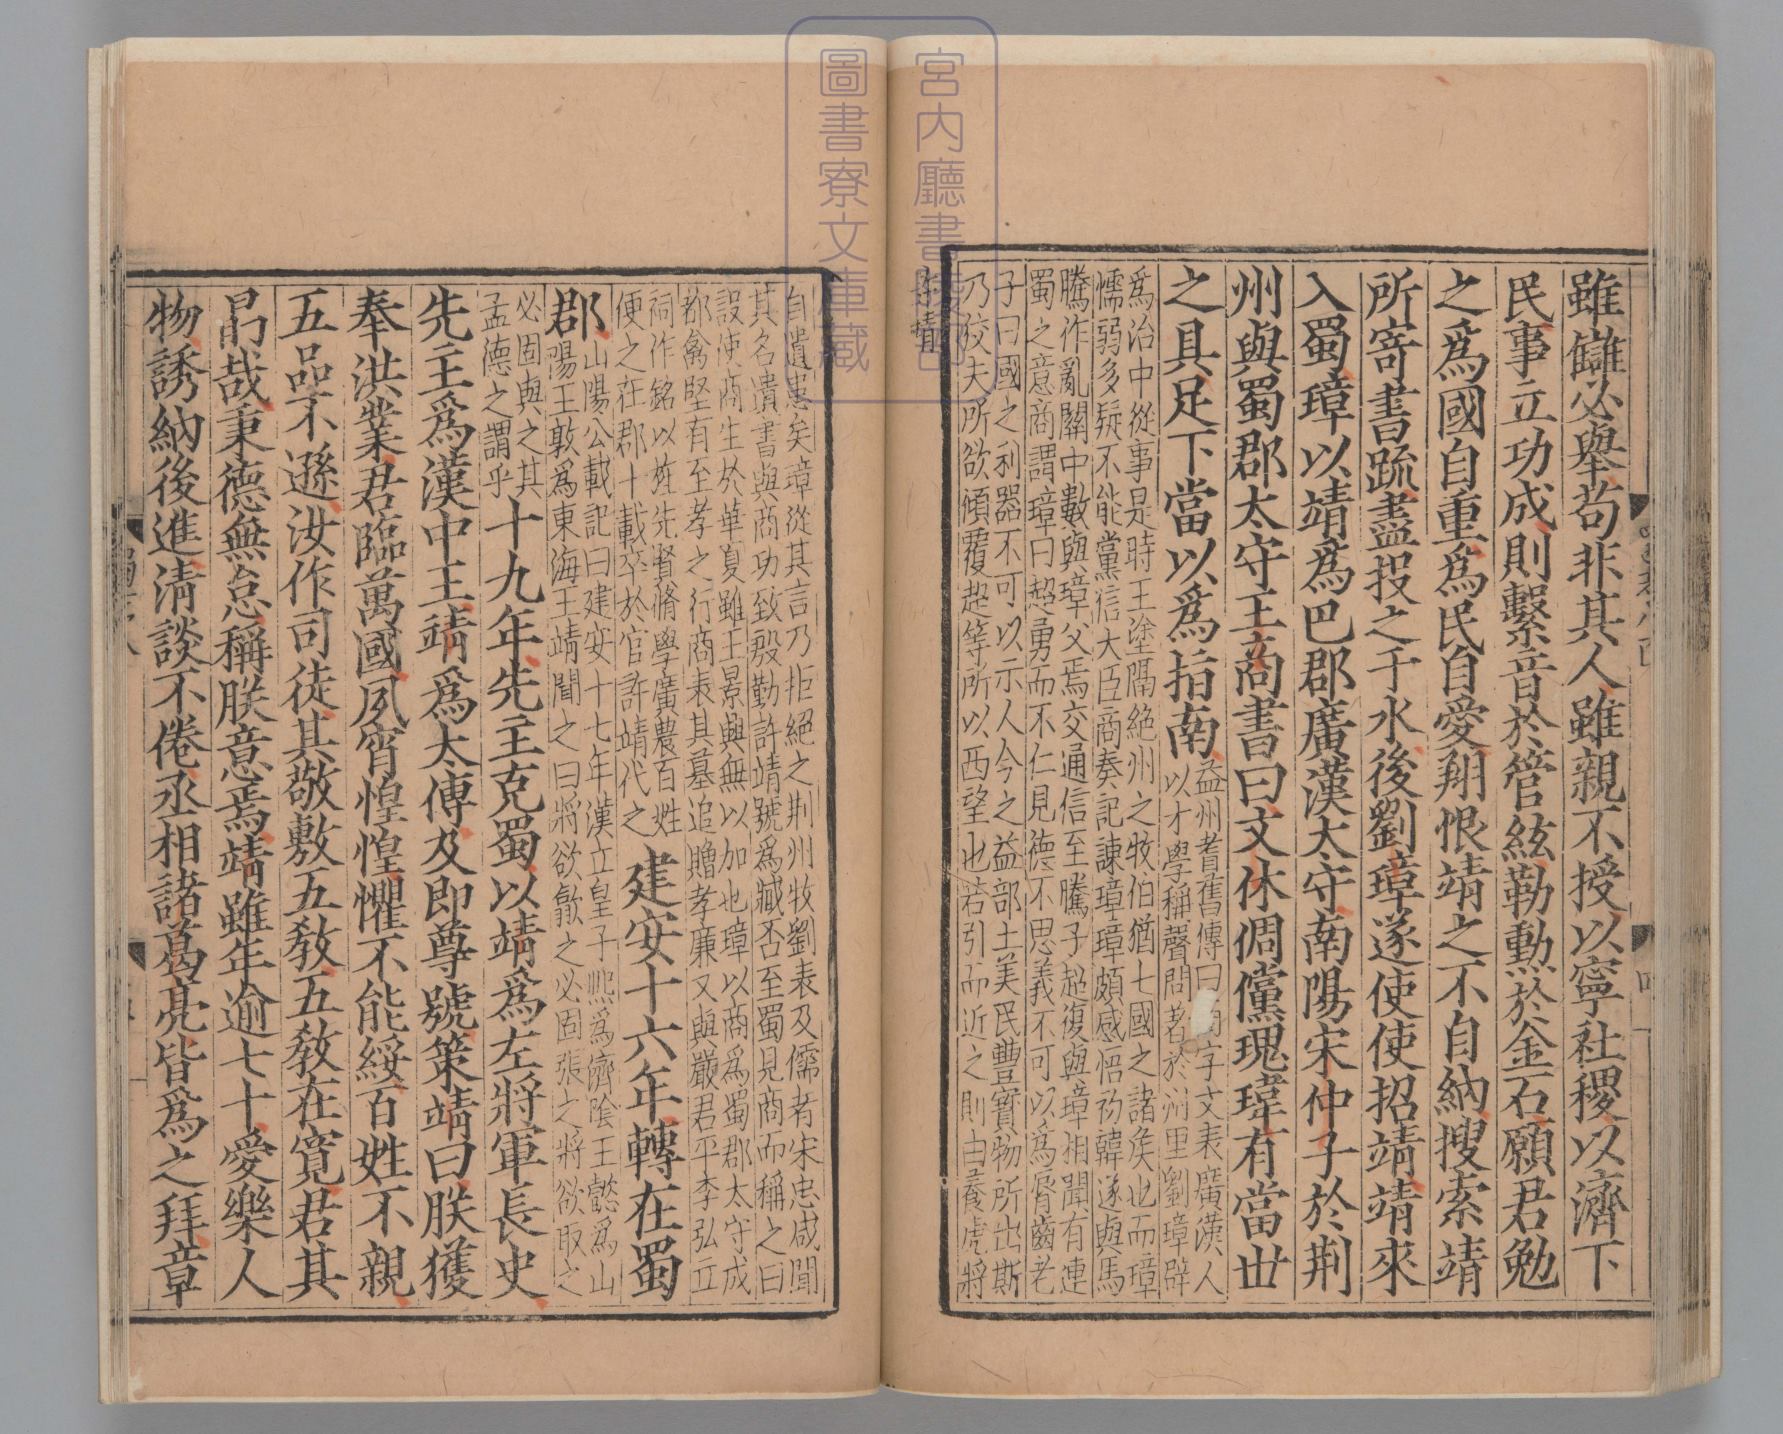 宮内廳書陵部
圖書寮文庫藏
雖讎必舉苟非其人雖親不授以寧社稷以濟下
民事立功成則繫音於管絃勒勳於金石願君勉
之爲國自重爲民自愛翔恨靖之不自納搜索靖
所寄書疏盡投之于水後劉璋遂使使招靖靖來
入蜀璋以靖爲巴郡廣漢太守南陽宋仲子於荆
州與蜀郡太守王商書曰文休倜儻瑰瑋有當世
之具足下當以爲指南
益州耆舊傳曰商字文表廣漢人
以才學稱聲問著於州里劉璋辟
爲治中從事是時王塗隔絶州之牧伯猶七國之諸侯也而璋
懦弱多疑不能黨信大臣商奏記諫璋璋頗感悟初韓遂與馬
騰作亂關中數與璋父焉交通信至騰子超復與璋相聞有連
蜀之意商謂璋曰超勇而不仁見德不思義不可以爲脣齒老
子曰國之利器不可以示人今之益部土美民豐寶物所出斯
乃狡夫所欲傾覆超等所以西望也若引而近之則由養虎將
許靖
自遺患矣璋從其言乃拒絶之荆州牧劉表及儒者宋忠咸聞
其名遺書與商功致殷勤許靖號爲臧否至蜀見商而稱之曰
設使商生於華夏雖王景興無以加也璋以商爲蜀郡太守成
都禽堅有至孝之行商表其墓追贈孝廉又與嚴君平李弘立
祠作銘以旌先賢脩學廣農百姓
便之在郡十載卒於官許靖代之
建安十六年轉在蜀
郡
山陽公載記曰建安十七年漢立皇子熈爲濟陰王懿爲山
陽王敦爲東海王靖聞之曰將欲歙之必固張之將欲取之
必固與之其
孟德之謂乎
十九年先主克蜀以靖爲左將軍長史
先主爲漢中王靖爲太傅及即尊號策靖曰朕獲
奉洪業君臨萬國夙宵惶惶懼不能綏百姓不親
五品不遜汝作司徒其敬敷五敎五敎在寛君其
勗哉秉德無怠稱朕意焉靖雖年逾七十愛樂人
物誘納後進清談不倦丞相諸葛亮皆爲之拜章